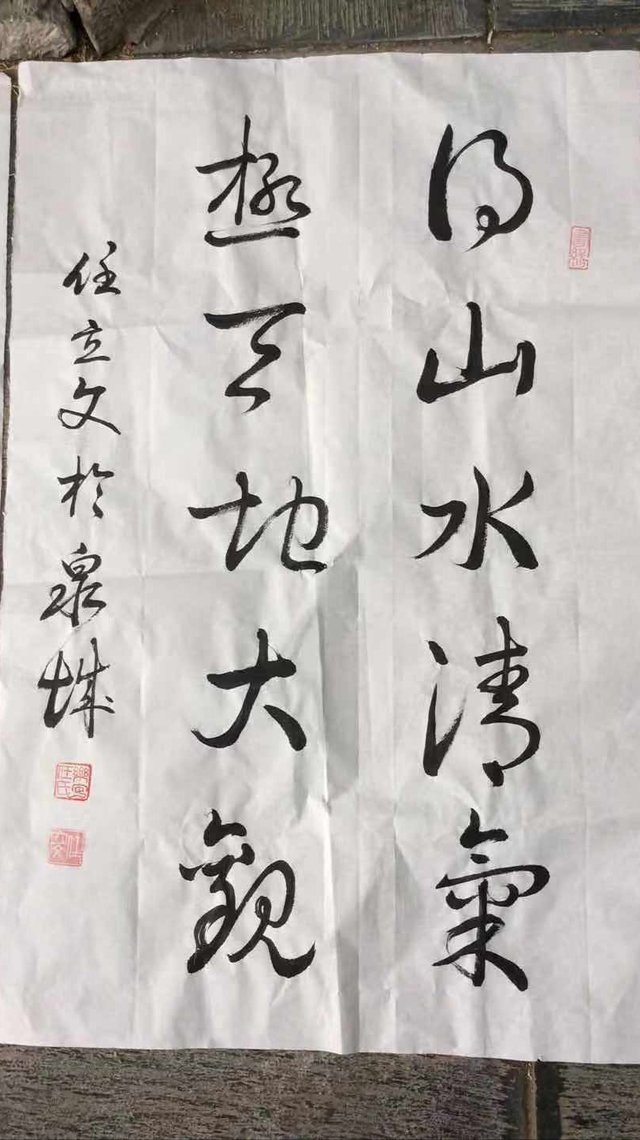 得山水清氣
極天地大觀
任立文於泉城